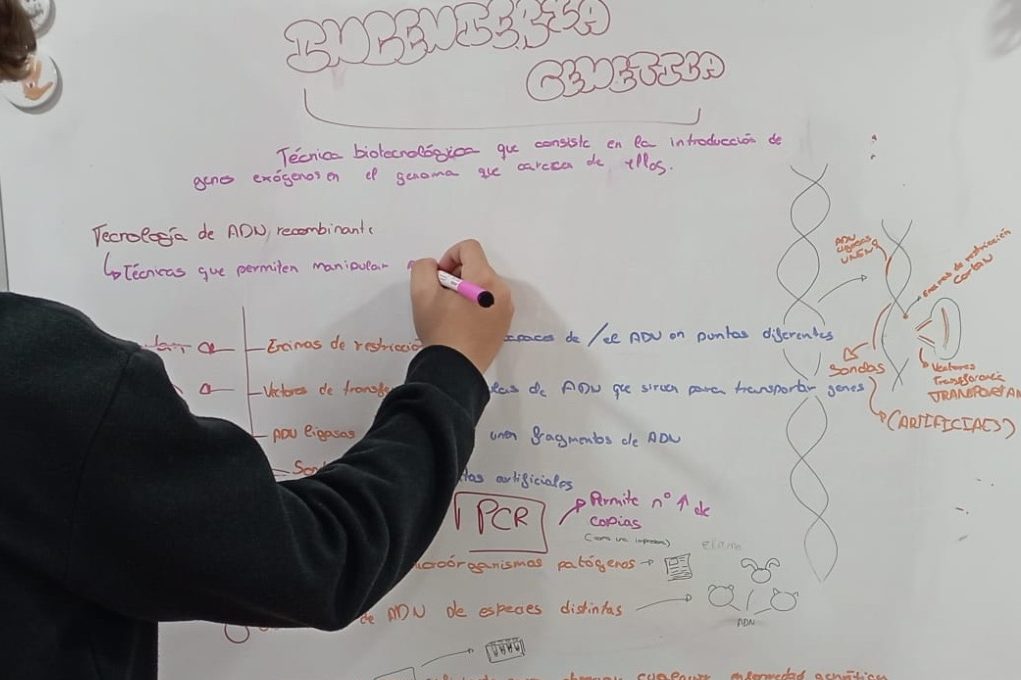 INGENIERÍA
GENETICA
Técnica biotecnológica que consiste en la introducción de
genes exógenos en el genoma que carecen de ellos.
Tecnología de ADN recombinante
Técnicas que permiten manipular
Enzimas de restricción capaces de /el ADN en puntos diferentes
Vectores de transfe las de ADN que sirven para transportar genes
ADN ligasas unen fragmentos de ADN
Son tas artificiales
PCR
Permite nº ↑ de
copias
(como una impresora)
microórganismos patógenos
de ADN de especies distintas
ADN
ADN
ligasas
UNEN
Enzimas de restricción
cortan
Sondas
(ARTIFICIALES)
Vectores
Transferencia
TRANSPORTAN
cualquier enfermedad genética